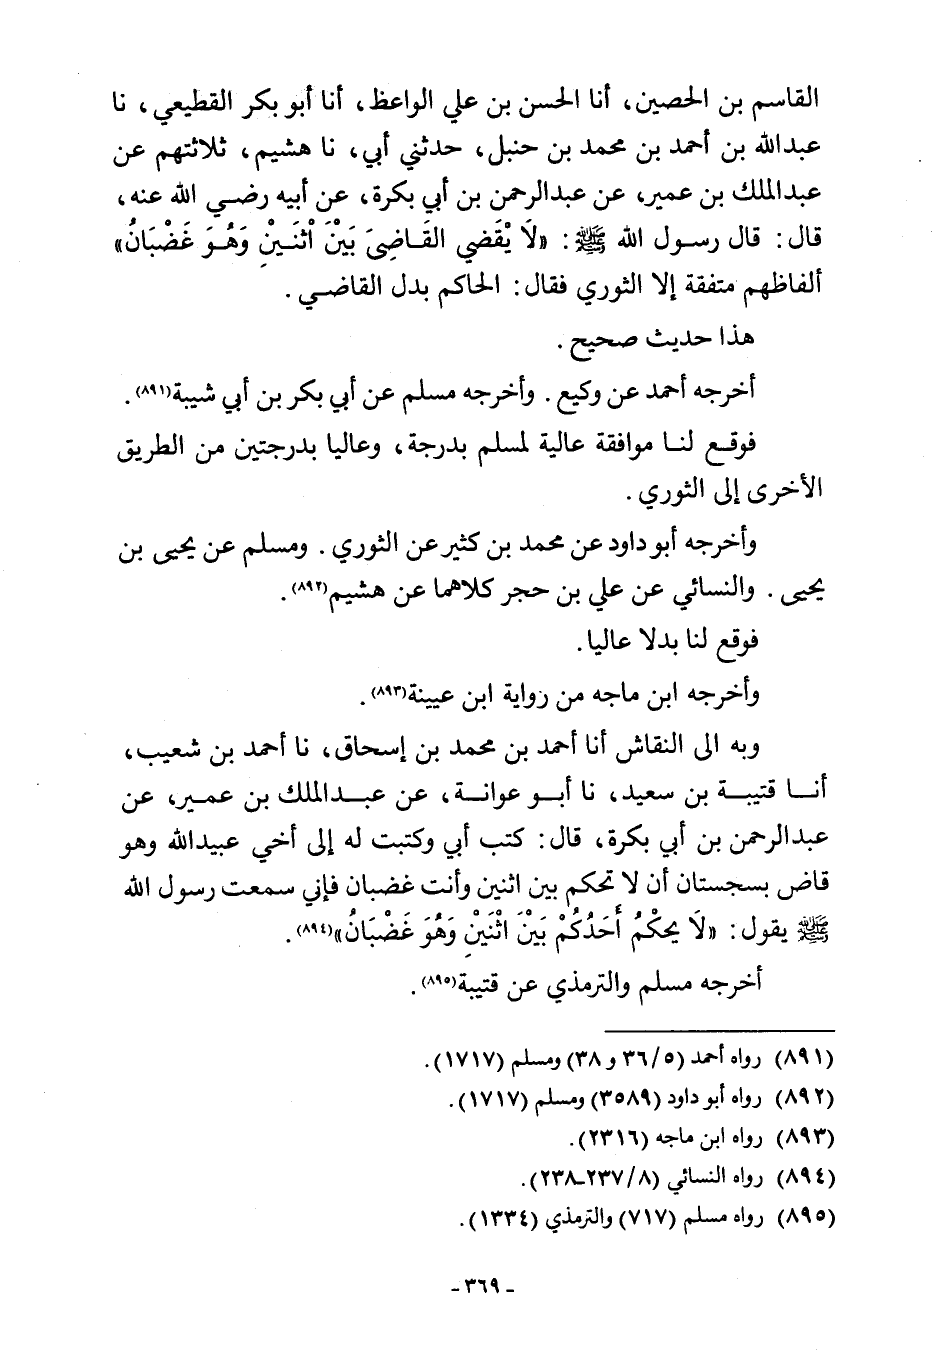 القاسم بن الحصين، أنا الحسن بن علي الواعظ، أنا أبو بكر القطيعي، نا
عبدالله بن أحمد بن محمد بن حنبل، حدثني أبي، نا هشيم، ثلاثتهم عن
عبدالملك بن عمير، عن عبدالرحمن بن أبي بكرة، عن أبيه رضي الله عنه،
قال: قال رسول الله ﷺ: «لَا يْقَضي القَاضِىَ بَيْنَ اْثنَـينْ وَهُـوَ غَضْبَانُ»
ألفاظهم متفقة إلا الثوري فقال: الحاكم بدل القاضي.
هذا حديث صحيح.
أخرجه أحمد عن وكيع. وأخرجه مسلم عن أبي بكر بن أبي شيبة(٨٩١).
فوقع لنا موافقة عالية لمسلم بدرجة، وعاليا بدرجتين من الطريق
الأخرى إلى الثوري.
وأخرجه أبو داود عن محمد بن كثير عن الثوري. ومسلم عن يحيى بن
يحيى. والنسائي عن علي بن حجر كلاهما عن هشيم(٨٩٢).
فوقع لنا بدلا عاليا.
وأخرجه ابن ماجه من رواية ابن عيينة(٨٩٣).
وبه الى النقاش أنا أحمد بن محمد بن إسحاق، نا أحمد بن شعيب،
أنا قتيبة بن سعيد، نا أبو عوانة، عن عبدالملك بن عمير، عن
عبدالرحمن بن أبي بكرة، قال: كتب أبي وكتبت له إلى أخي عبيدالله وهو
قاض بسجستان أن لا تحكم بين اثنين وأنت غضبان فإني سمعت رسول الله
ﷺ يقول: «لَا يحكْمُ أَحَدُكُمْ بَيْنَ اثْنَينْ وَهُوَ غَضْبَانُ»(٨٩٤).
أخرجه مسلم والترمذي عن قتيبة(٨٩٥).
(٨٩١) رواه أحمد (٥/٣٦ و ٣٨) ومسلم (١٧١٧).
(٨٩٢) رواه أبو داود (٣٥٨٩) ومسلم (١٧١٧).
(٨٩٣) رواه ابن ماجه (٢٣١٦).
(٨٩٤) رواه النسائي (٨/٢٣٧-٢٣٨).
(٨٩٥) رواه مسلم (٧١٧) والترمذي (١٣٣٤).
- ٣٦٩ -